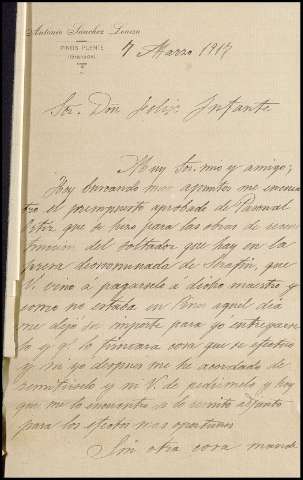 Antonio Sánchez Linera
PINOS PUENTE
(GRANADA)
7 Marzo 1917
Sr. Don Felix Infante
Muy Sr. mio y amigo;
Hoy buscando unos apuntes me encuen
tro el presupuesto aprobado de Pascual
Ortiz que se hizo para las obras de
del boltador que hay en la
presa denominada de Serafin, que
V. vino a pagarselo a dicho maestro y
como no estaba en Pinos aquel dia
me dejo su importe para yo entregarse
lo y q. lo firmara cosa que se efectuo
y ni yo despues me he acordado de
remitirselo y ni V. de pedirmelo y hoy
que me lo encuentro se lo remito adjunto
para los efectos mas oportunos
Sin otra cosa mande